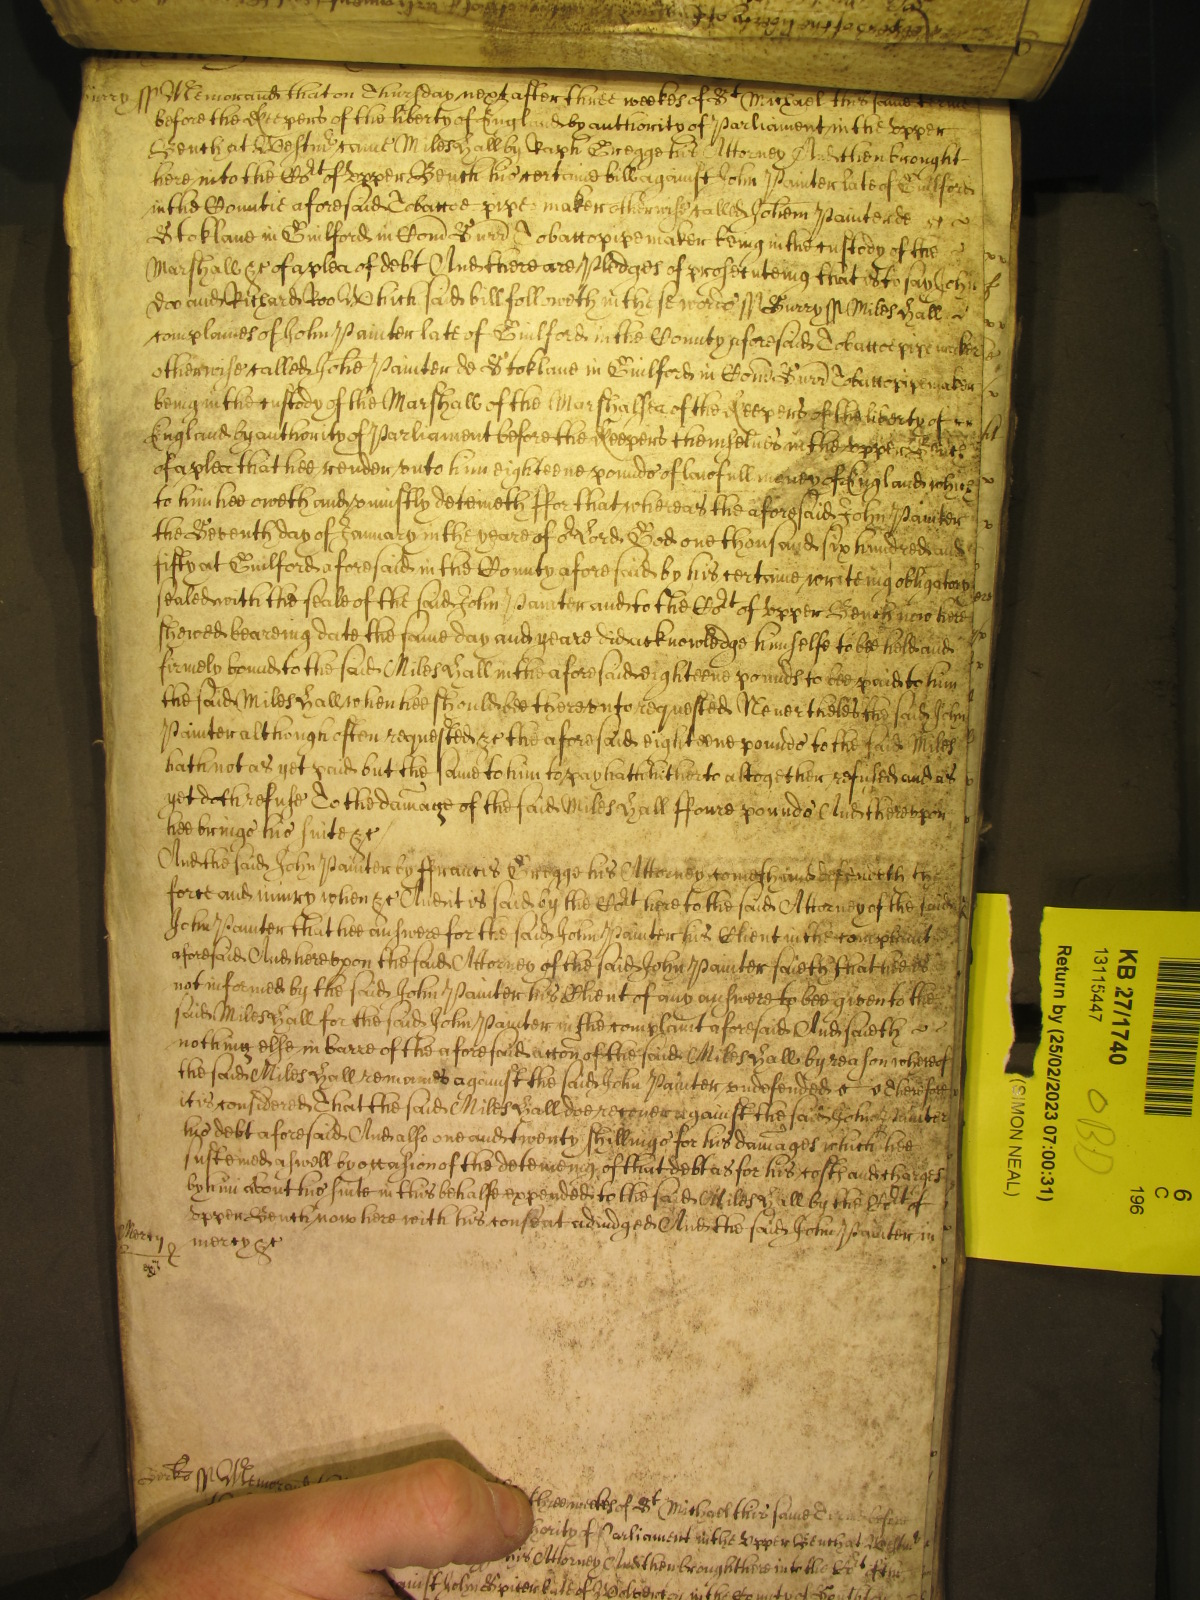 Surry ss Memorand that on Thursday next after three weekes of St Michael this same terme
before the Keepers of the liberty of England by authority of Parliament in the upper
Bench at Westmr came Miles Hall by Raph Gregge his Attorney And then brought
here into the Cort of upper Bench his certaine bill against John Painter late of Guilford
in the Countie aforesaid Tobaccoe pipe maker otherwise called Johem Painter de
Stoklane in Guilford in Com Surr Tobaccopipemaker being in the custody of the
Marshall &c of a plea of debt And there are Pledges of prosecuteing that is to say John
Doo and Richard Roo Which said bill followeth in these words ss Surry ss Miles Hall
complaines of John Painter late of Guilford in the County aforesaid Tobaccoe pipe maker
otherwise called Johe Painter de Stoklane in Guilford in Com Surr Tobaccopipemaker
being in the custody of the Marshall of the Marshalsea of the Keepers of the liberty of
England by authority of Parliament before the Keepers themselves in the upper Bench
of a plea that hee render unto him eighteene pounds of lawfull money of England which
to him hee oweth and uniustly deteineth ffor that whereas the aforesaid John Painter
the Seventh day of January in the yeare of or Lord God one thousand six hundred and
fifty at Guilford aforesaid in the County aforesaid by his certaine writeing obligatory
sealed with the seale of the said John Painter and to the Cort of upper Bench now here
shewed beareing date the same day and yeare did acknowledge himselfe to bee held and
firmely bound to the said Miles Hall in the aforesaid eighteene pounds to bee paid to him
the said Miles Hall when hee should bee thereunto requested Neverthelesse the said John
Painter although often requested &c the aforesaid eighteene pounds to the said Miles
hath not as yet paid but the same to him to pay hath hitherto altogether refused and as
yet doth refuse To the damage of the said Miles Hall ffoure pounds And thereupon
hee brings his suite &c
And the said John Painter by ffrancis Gregge his Attorney comes and defendeth the
force and iniury when &c And it is said by the Cort here to the said Attorney of the said
John Painter that hee answere for the said John Painter his Client in the complaint
aforesaid And hereupon the said Attorney of the said John Painter saieth that hee is
not informed by the said John Painter his Client of any answere to bee given to the
said Miles Hall for the said John Painter in the complaint aforesaid And saieth
nothing else in barre of the aforesaid accon of the said Miles Hall by reason whereof
the said Miles Hall remaines against the said John Painter undefended &c Therefore
it is considered That the said Miles Hall doe recover against the said John Painter
his debt aforesaid And also one and twenty shillings for his damages which hee
susteined aswell by occasion of the deteineing of that debt as for his costs and charges
by him about his suite in this behalfe expended to the said Miles Hall by the Cort of
upper Bench now here with his consent adiudged And the said John Painter in
Mercy
mercy &c
ss Memorand
three weekes of St Michael this same Terme before
authority of Parliament in the upper Bench at Westmr
his Attorney And then brought here into the Cort
against John late of in the County of
KB 27/1740
13115447
Return by (25/02/2023 07:00:31)
(SIMON NEAL)
OBD
6
C
196